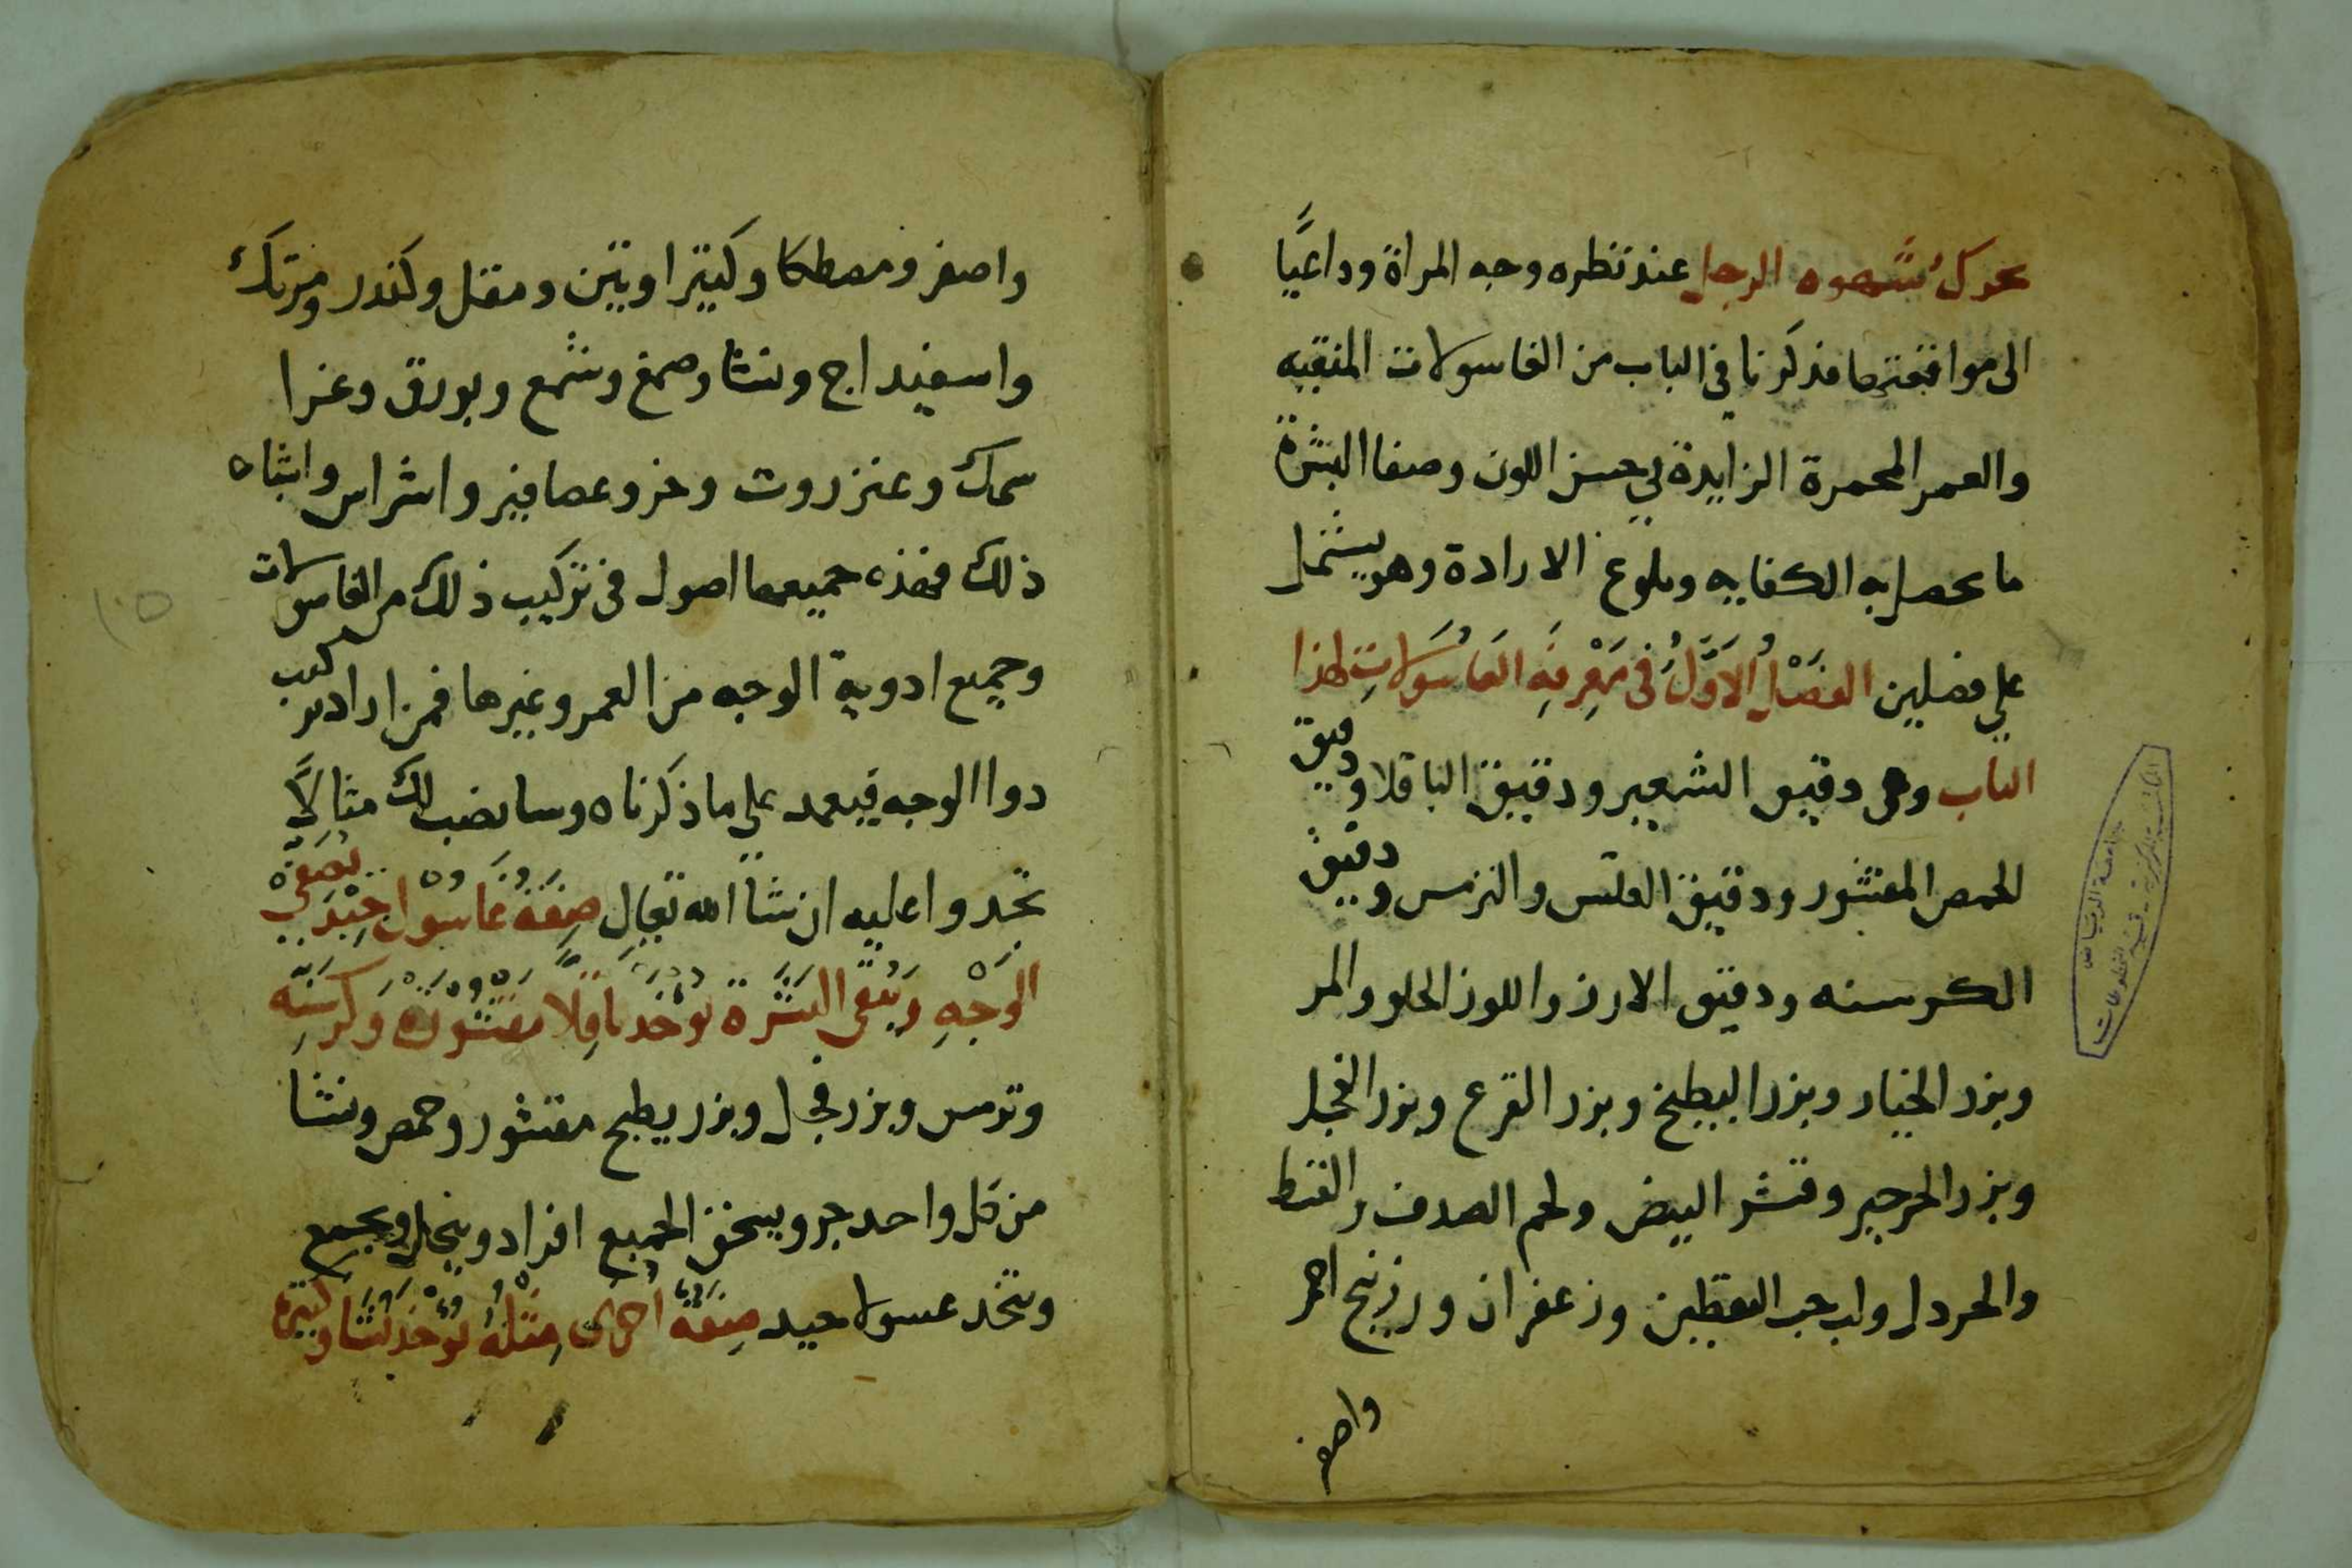 يحرك شهوه الرجل عند نظره وجه المراة وداعيًا
الى موافقتها فذكرنا في الباب من الغاسولات المنقيه
والغمر المحمرة الزايدة في حسن اللون وصفا البشرة
ما يحصل به الكفايه وبلوغ الارادة وهو يشتمل
على فصلين الفَصْلُ الاَوَّلُ فى مَعْرِفَهِ الغَاسُولَاتِ لهذا
الباب وهى دقيق الشعير ودقيق الباقلا ودقيق
الحمص المقشور ودقيق العدس والترمس ودقيق
الكرسنه ودقيق الارز واللوز الحلو والمر
وبزر الخيار وبزر البطيخ وبزر القرع وبزر الفجل
وبزر الجرجير وقشر البيض ولحم الصدف والقسط
والخردل ولب حب اليقطين وزعفران وزرنيخ احمر
واصفر
واصفر ومصطكا وكثيرا وتين ومقل وكندر ومرتك
واسفيداج ونشا وصمغ وشمع وبورق وغرا
سمك وعنزروت وخرو عصافير واشراس واشباه
ذلك فهذه جميعها اصول فى تركيب ذلك من الغاسولات
وجميع ادوية الوجه من الغمر وغيرها فمن اراد تركيب
دوا الوجه فيعمد على ما ذكرناه وسانضب لك مثالًا
تحذوا عليه ان شا الله تعالى صِفَةُ غَاسُول جَيِّد يُصَفي
الوَجْهِ وَيُنَقى البَشَرَة يُوخَذ باقِلّا مَقْشُورَة وَكَرسَنّه
وترمس وبزر فجل وبزر بطيخ مقشور وحمص ونشا
من كل واحد جزو يسحق الجميع افراد وينخل ويجمع
ويتخذ غسولا جيد صِفَةُ اخرى مِثْلهُ يُوخَذ نَشَا وكثيرا
١٠٥
جامعة الرياض
المكتبة المركزية - قسم المخطوطات